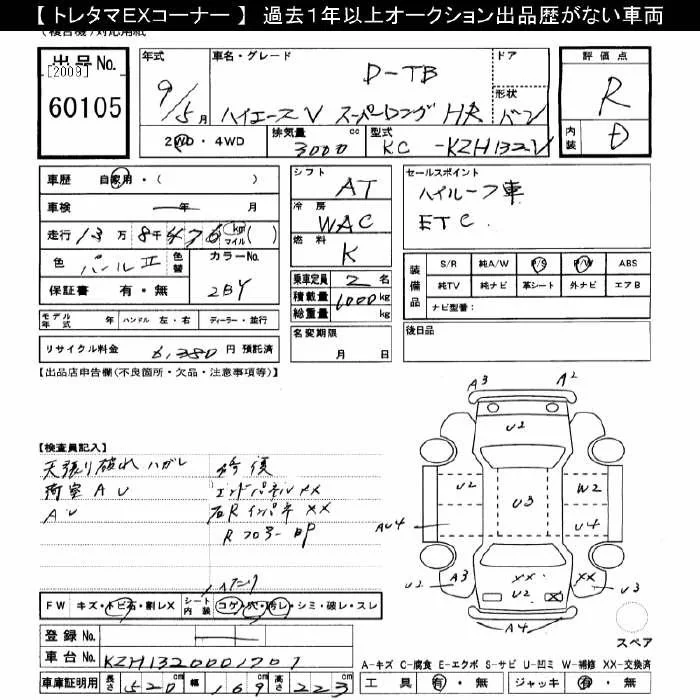 【 トレタマEXコーナー 】 過去1年以上オークション出品歴がない車両
出品No.
[2009]
60105
年式
9/5月
車名・グレード
D-TB
ハイエースV スーパーロング HR バン
ドア
形状
2WD・4WD
排気量 3000 cc
型式 KC -KZH132V
評価点
R
内装 D
車歴 自家用・( )
車検 ー年 月
走行 13万8千476 km マイル( )
色 パールII
色替
カラーNo.
2BY
保証書 有・無
モデル年式 年 ハンドル 左・右 ディーラー・並行
リサイクル料金 6,380 円 預託済
シフト AT
冷房 WAC
燃料 K
乗車定員 2 名
積載量 1000 kg
総重量 kg
名変期限
月 日
セールスポイント
ハイルーフ車
ETC
装備品
S/R 純A/W P/S P/W ABS
純TV 純ナビ 革シート 外ナビ エアB
ナビ型番:
後日品
【出品店申告欄(不良箇所・欠品・注意事項等)】
【検査員記入】
天張り破れ ハガレ
荷室 AU
AU
修復
エンドパネルXX
右RインパネXX
Rフロアー
A3 A2
U2
U2 U3 W2
AU4 U4
U2 A3 XX U2 XX U3
A4
スペア
FW キズ・トビ石・割レX
シート内装 コゲ・穴・汚レ・シミ・破レ・スレ
登録No.
車台No. KZH1320001707
車庫証明用 長さ 520 cm 幅 169 cm 高さ 223 cm
A-キズ C-腐食 E-エクボ S-サビ U-凹ミ W-補修 XX-交換済
工具 有・無 ジャッキ 有・無